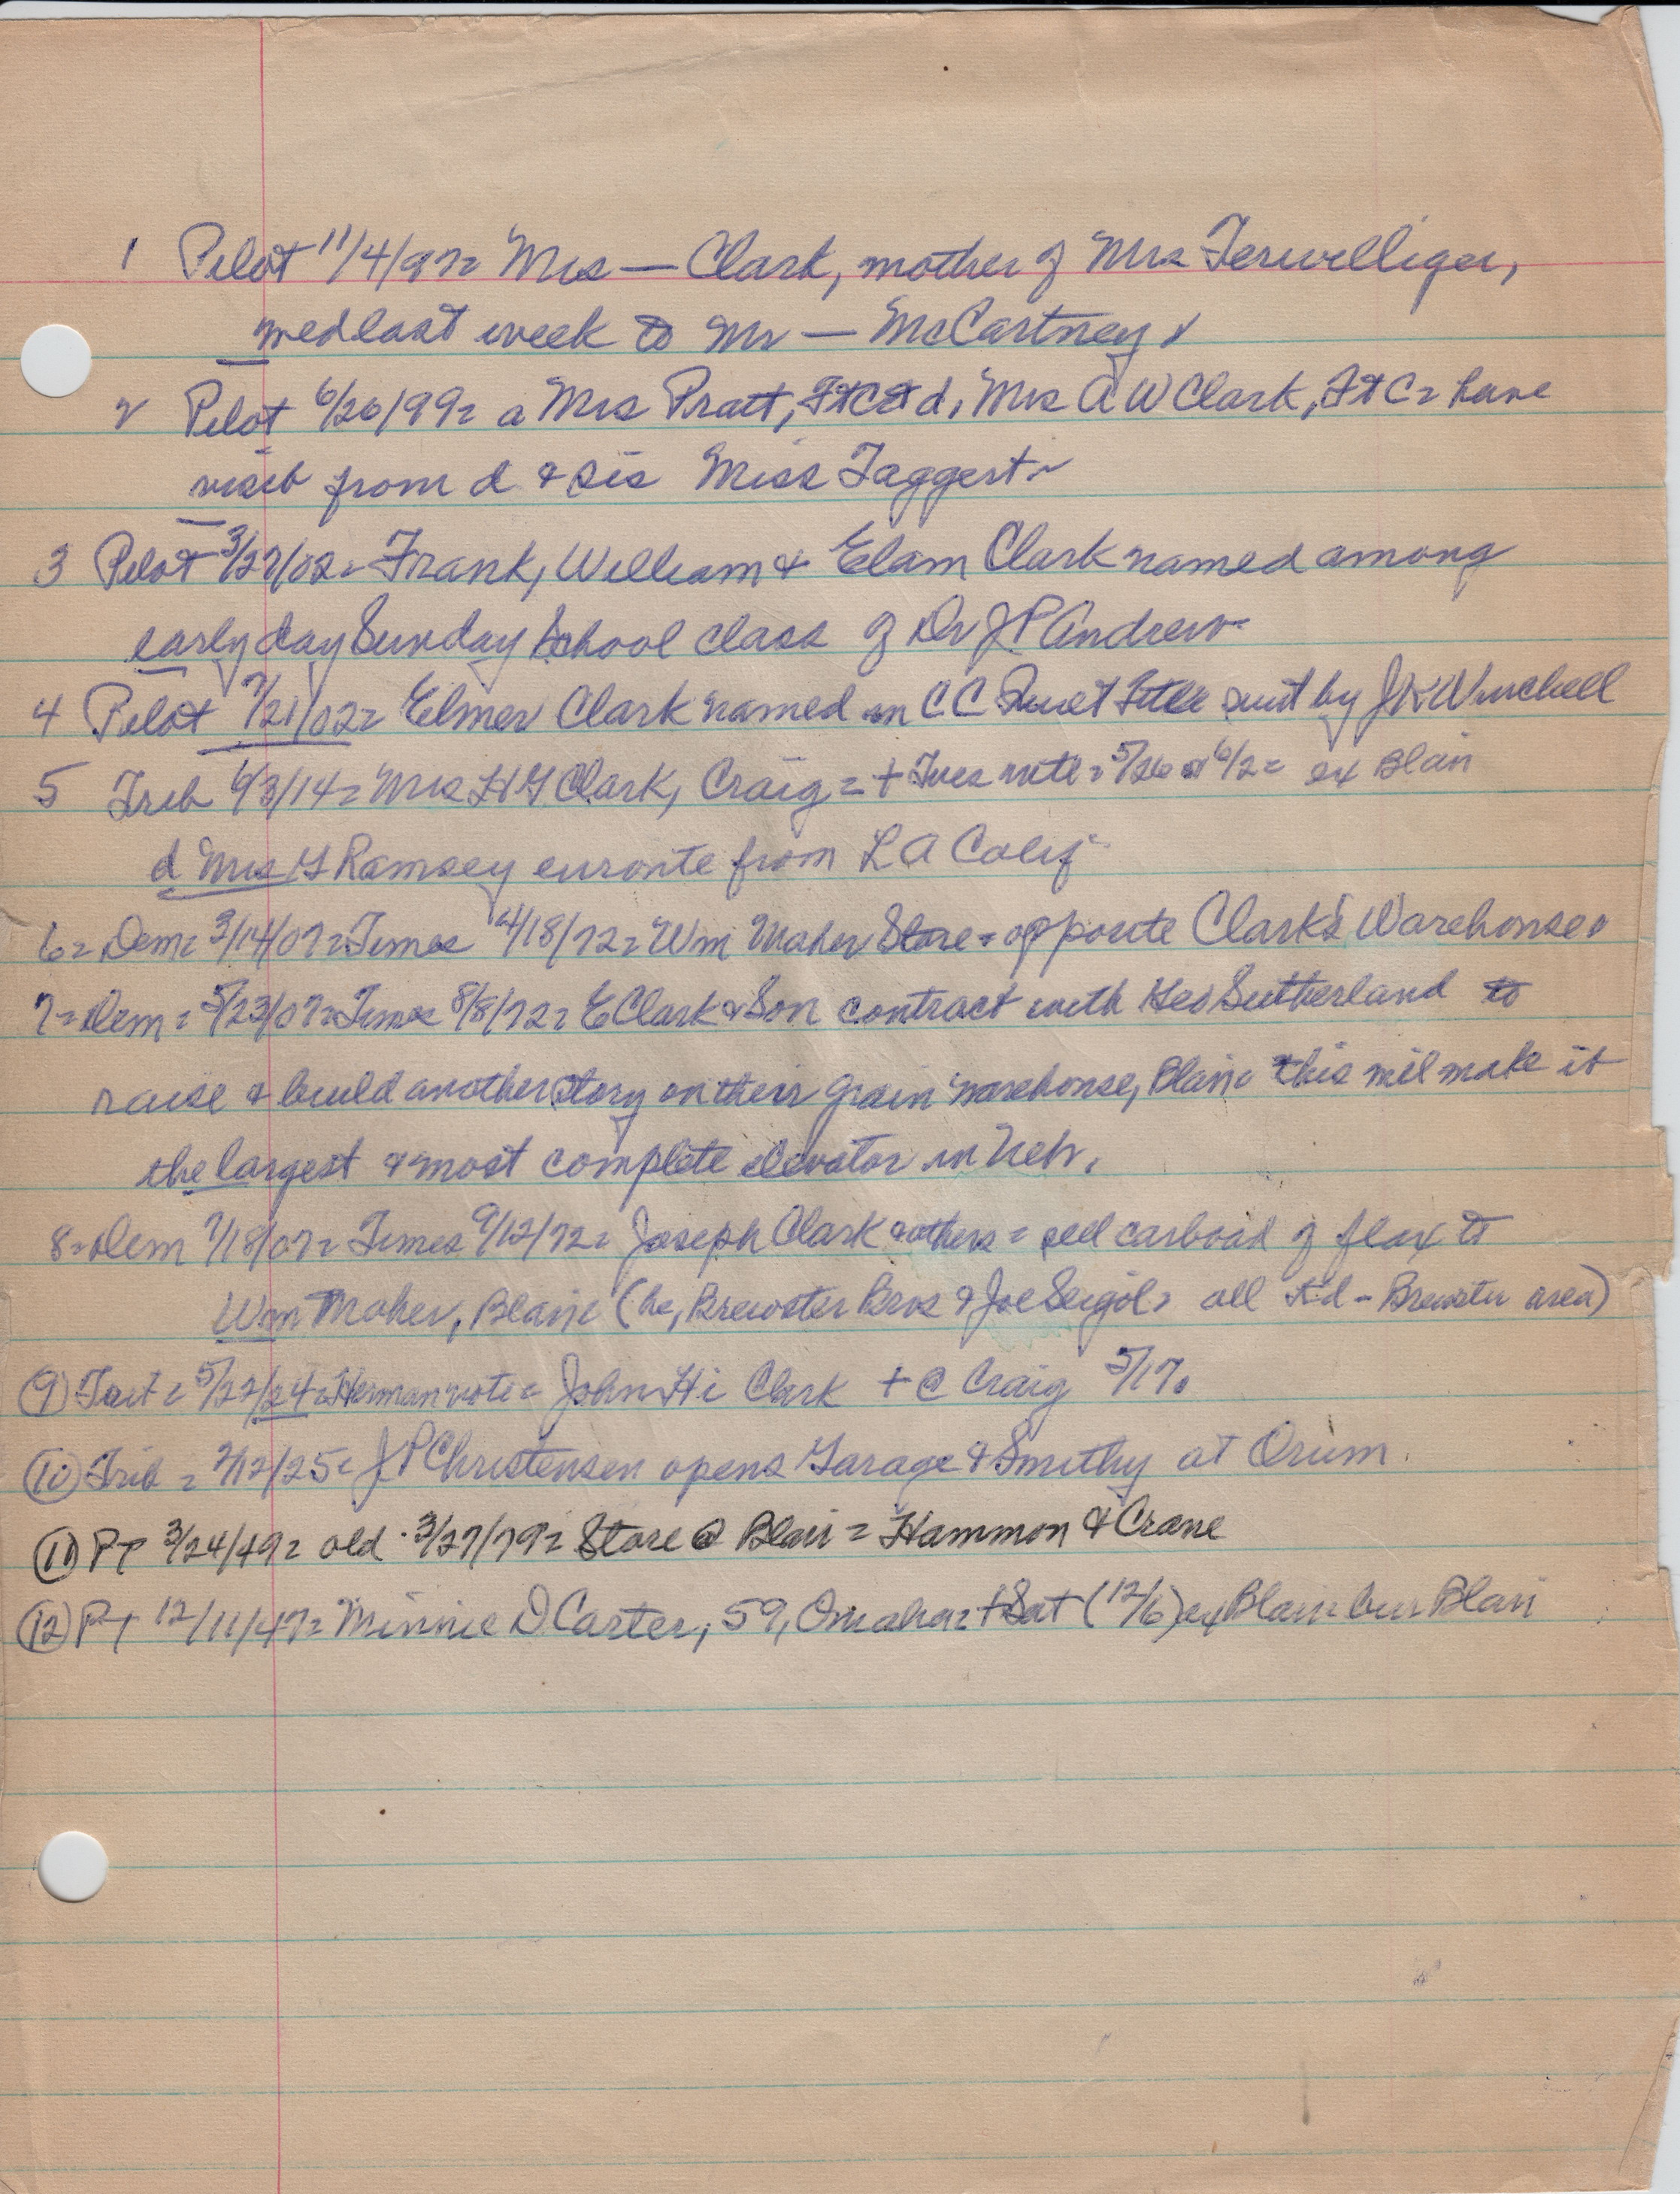 1 Pilot 11/4/97= Mrs — Clark, mother of Mrs Terwilliger,
med last week to Mr — McCartney
2 Pilot 6/26/99= a Mrs Pratt, Ft C & d, Mrs A W Clark, Ft C= have
visit from d & sis Miss Taggert
3 Pilot 3/27/02= Frank, William & Elam Clark named among
early day Sunday School class of Dr J P Andrew
4 Pilot 7/21/02= Elmer Clark named in C C Quiet Title suit by J W Winchell
5 Trib 6/3/14= Mrs H G Clark, Craig = + Tues nite = 5/26 or 6/2= ex Blair
d Mrs G Ramsey enroute from L A Calif
6= Dem= 3/14/07= Times 4/18/72= Wm Maher Store= opposite Clark's Warehouse
7= Dem= 5/23/07= Times 8/8/72= E Clark & Son contract with Geo Sutherland to
raise & build another story on their grain warehouse, Blair= this will make it
the largest & most complete elevator in Neb.
8= Dem 7/18/07= Times 9/12/72= Joseph Clark & others = sell carload of flax to
Wm Maher, Blair= (he, Brewster Bros & Joe Seigol= all - Brewster area)
(9) = 5/22/24= Herman note= John Hi Clark + @ Craig 5/17.
(10) Trib = 2/12/25= J P Christensen opens Garage & Smithy at Orum.
(11) PT 3/24/49= old 3/27/79= Store @ Blair = Hammon & Crane
(12) PT 12/11/47= Minnie D Carter, 59, Omaha= + Sat (12/6) ex Blair= bur Blair